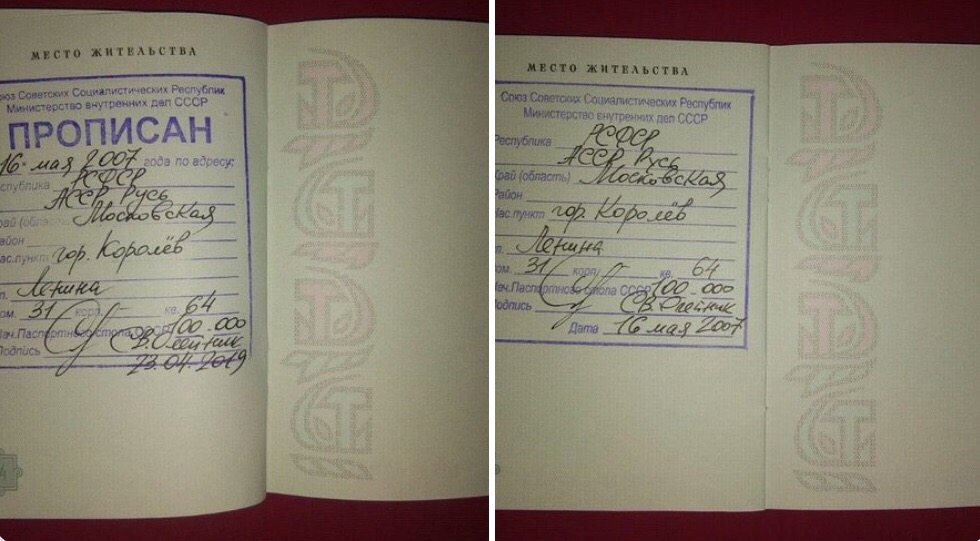 МЕСТО ЖИТЕЛЬСТВА
Союз Советских Социалистических Республик
Министерство внутренних дел СССР
ПРОПИСАН
16 мая 2007 года по адресу:
спублика РСФСР
АССР Русь
рай (область) Московская
айон
ас.пункт гор. Королёв
Ленина
ом. 31 корп. кв. 64
ач.Паспортного стола СССР 100-000
одпись С.В. Олейник
23.04.2019
МЕСТО ЖИТЕЛЬСТВА
Союз Советских Социалистических Республик
Министерство внутренних дел СССР
Республика РСФСР
АССР Русь
рай (область) Московская
Район
ас.пункт гор. Королёв
Ленина
ом. 31 корп. кв. 64
ач.Паспортного стола СССР 100-000
одпись С.В. Олейник
Дата 16 мая 2007